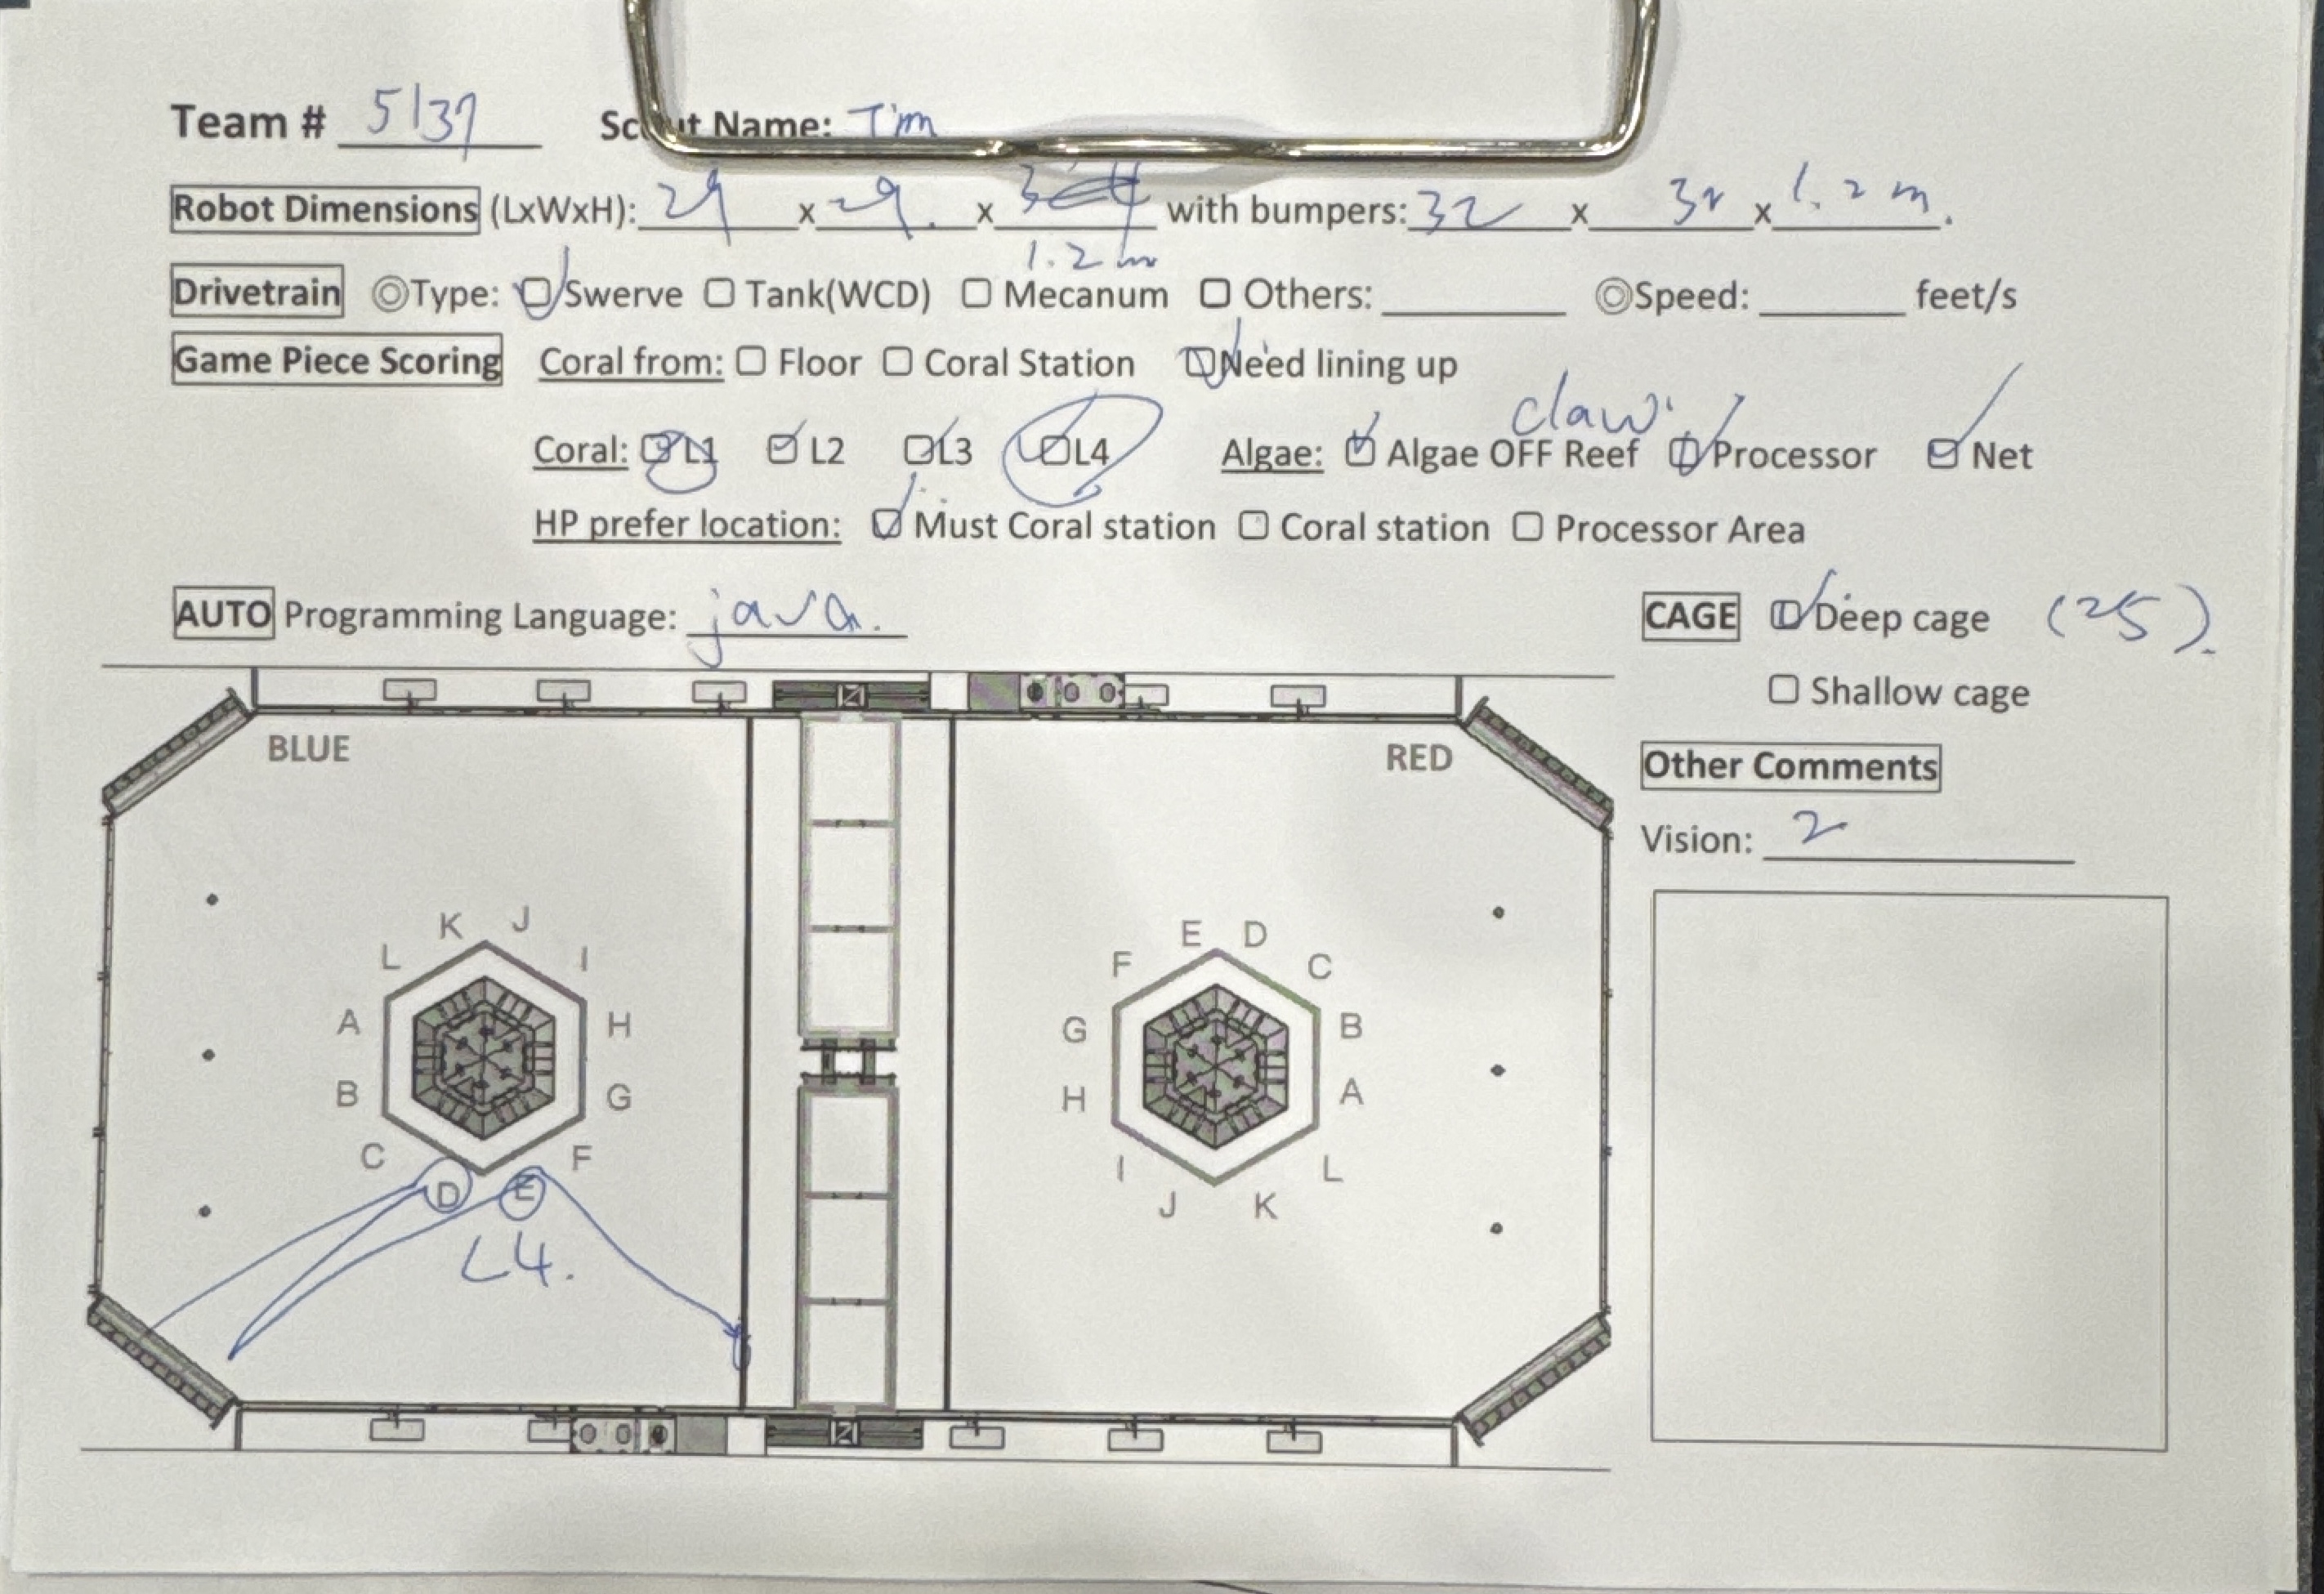 Team # 5137 Scout Name: Tim
Robot Dimensions (LxWxH): 29 x 29. x with bumpers: 32 x 32 x 1.2 m.
1.2 m
Drivetrain ◎Type: ☑ Swerve ☐ Tank(WCD) ☐ Mecanum ☐ Others: ______ ◎Speed: ______ feet/s
Game Piece Scoring Coral from: ☐ Floor ☐ Coral Station ☑ Need lining up
claw
Coral: ☑ L1 ☑ L2 ☑ L3 ☑ L4 Algae: ☑ Algae OFF Reef ☑ Processor ☑ Net
HP prefer location: ☑ Must Coral station ☐ Coral station ☐ Processor Area
AUTO Programming Language: java. CAGE ☑ Deep cage (25).
☐ Shallow cage
BLUE RED
Other Comments
Vision: 2
K J E D
L I F C
A H G B
B G H A
C F I L
D E J K
L4.